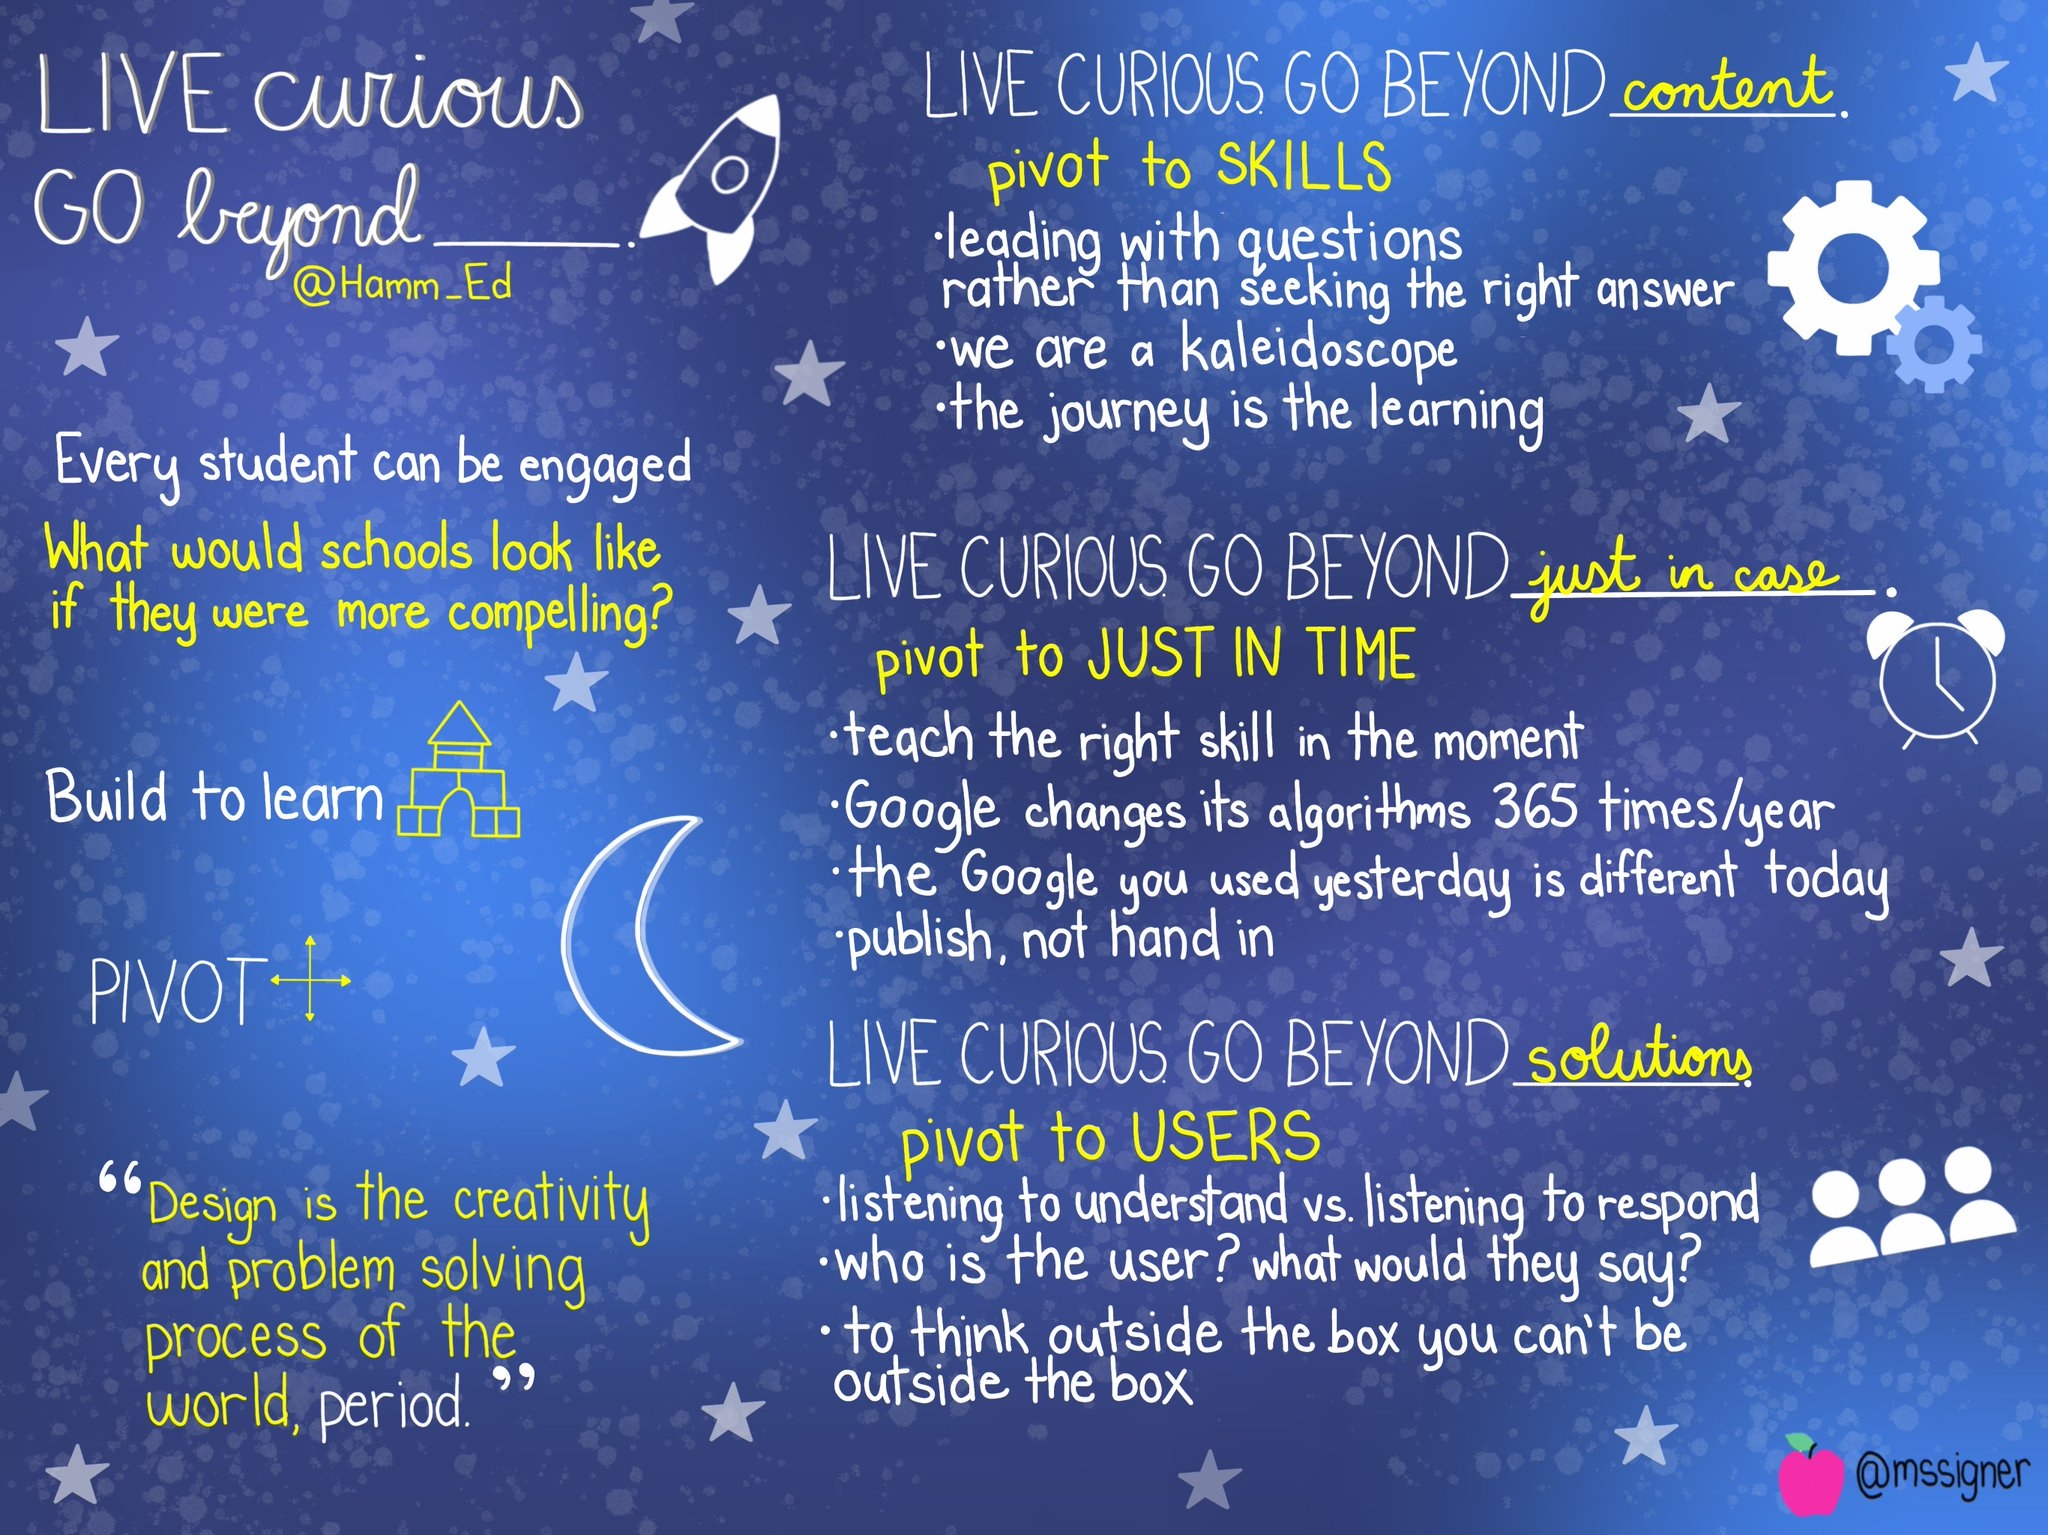 LIVE curious
GO beyond ______.
@Hamm_Ed
Every student can be engaged
What would schools look like
if they were more compelling?
Build to learn
PIVOT
“Design is the creativity
and problem solving
process of the
world, period.”
LIVE CURIOUS. GO BEYOND content.
pivot to SKILLS
·leading with questions
rather than seeking the right answer
·we are a kaleidoscope
·the journey is the learning
LIVE CURIOUS. GO BEYOND just in case.
pivot to JUST IN TIME
·teach the right skill in the moment
·Google changes its algorithms 365 times/year
·the Google you used yesterday is different today
·publish, not hand in
LIVE CURIOUS. GO BEYOND solutions.
pivot to USERS
·listening to understand vs. listening to respond
·who is the user? what would they say?
·to think outside the box you can't be
outside the box
@mssigner